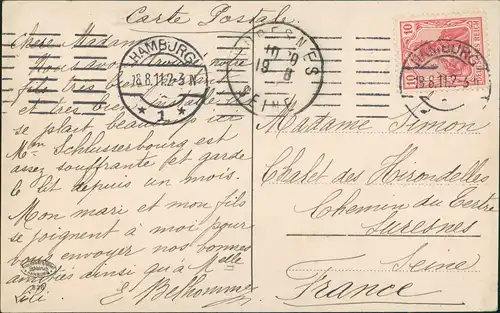 Carte Postale
Chère Madame
Nous avons
fils très bien
et très bien installé
se plaît beaucoup ici
Mme Schlusserbourg est
assez souffrante et garde
le lit depuis un mois.
Mon mari et mon fils
se joignent à moi pour
vous envoyer nos bonnes
amitiés ainsi qu'à Melle
Lili. E. Belhomme
HAMBURG
18.8.11.2-3 N
* 1 *
SURESNES
10 -9
19 8
SEINE
10 10
HAMBURG
18.8.11.2-3 N
Madame Simon
Chalet des Hirondelles
Chemin du Tertre
Suresnes
Seine
France